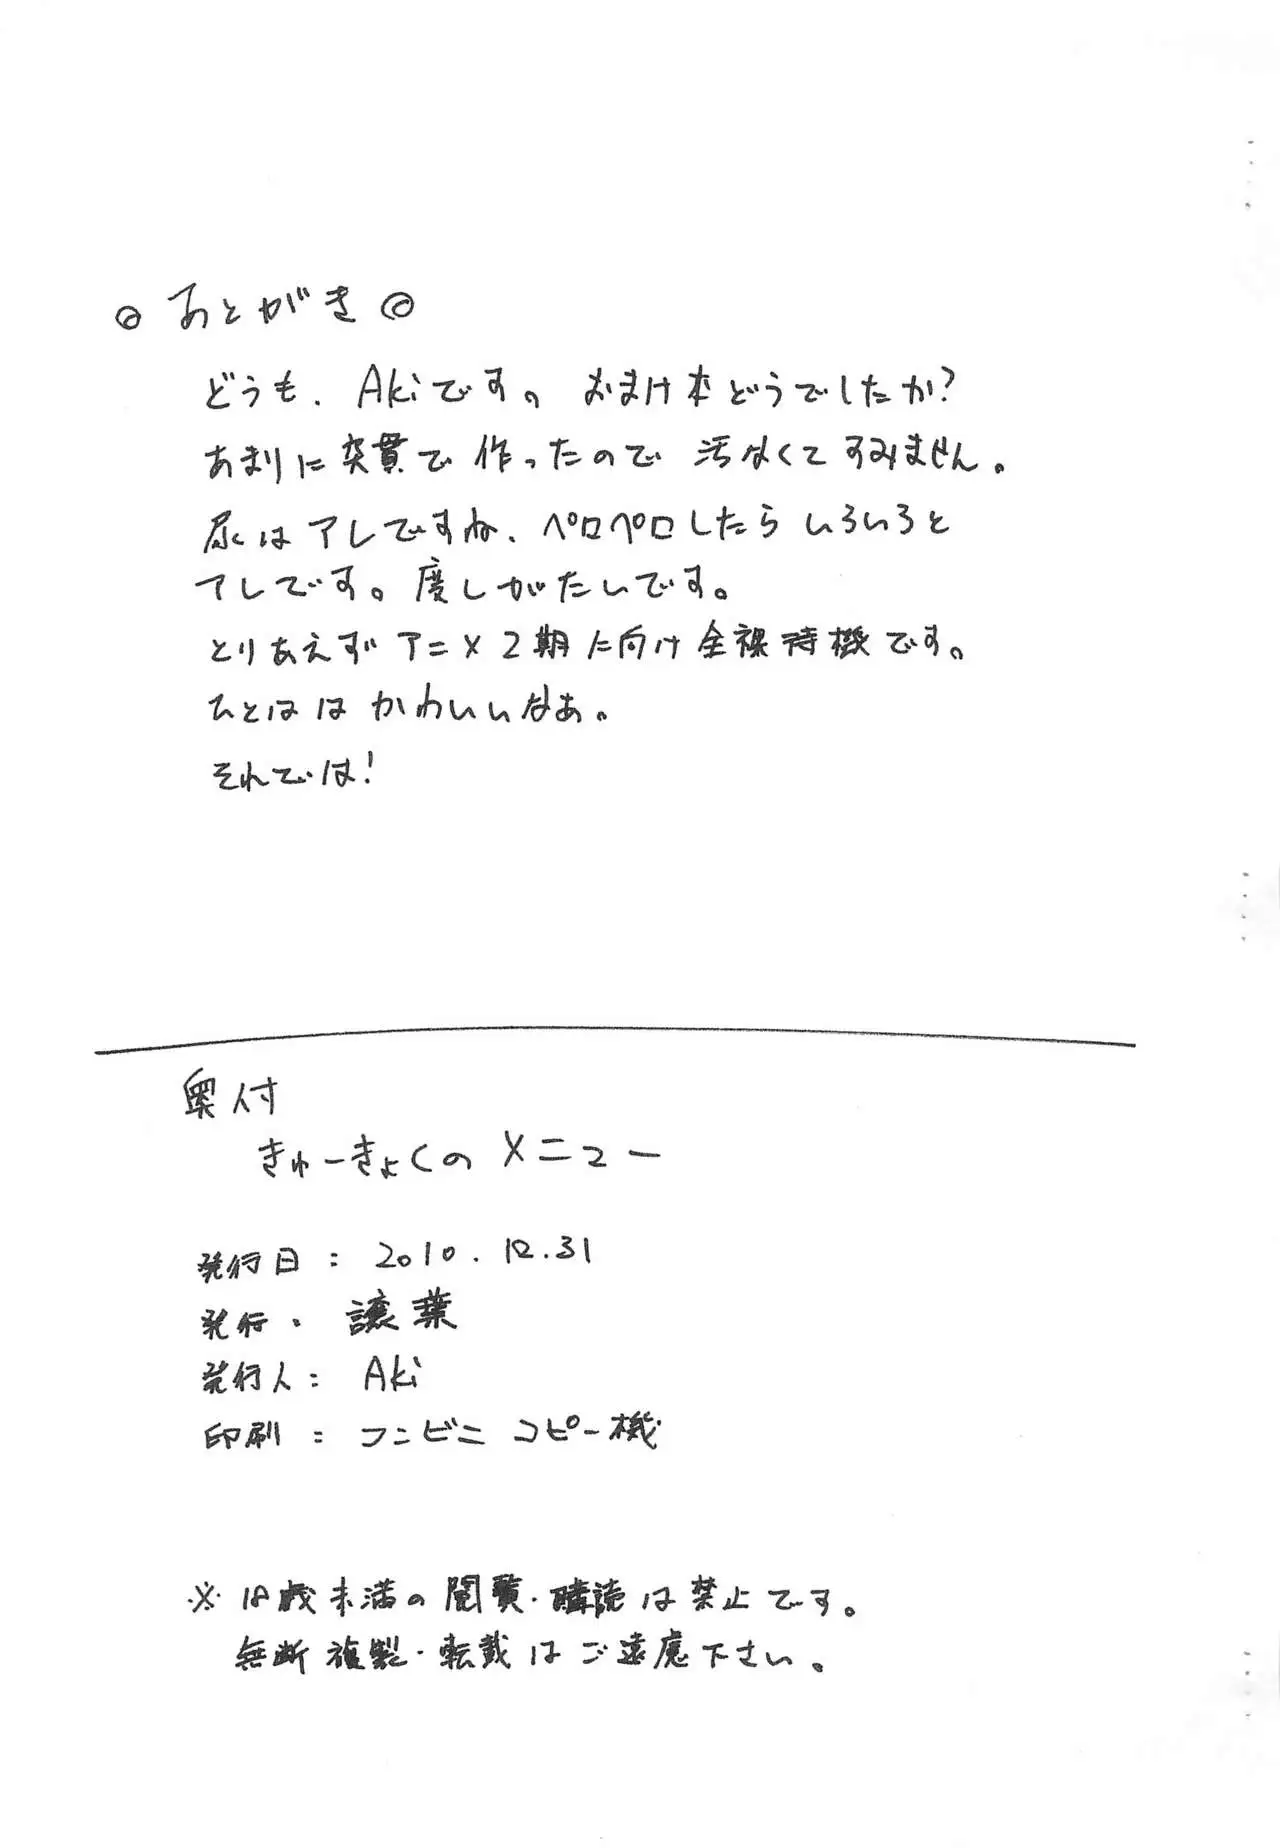 ◎ あとがき ◎
どうも、Akiです。おまけ本どうでしたか?
あまりに突貫で作ったので汚なくてすみません。
尿はアレですね、ペロペロしたらいろいろと
アレです。度しがたいです。
とりあえずアニメ2期に向け全裸待機です。
ひとははかわいいなぁ。
それでは!
奥付
きゅーきょくのメニュー
発行日: 2010.12.31
発行: 譲葉
発行人: Aki
印刷: コンビニコピー機
※18歳未満の閲覧・購読は禁止です。
無断複製・転載はご遠慮下さい。